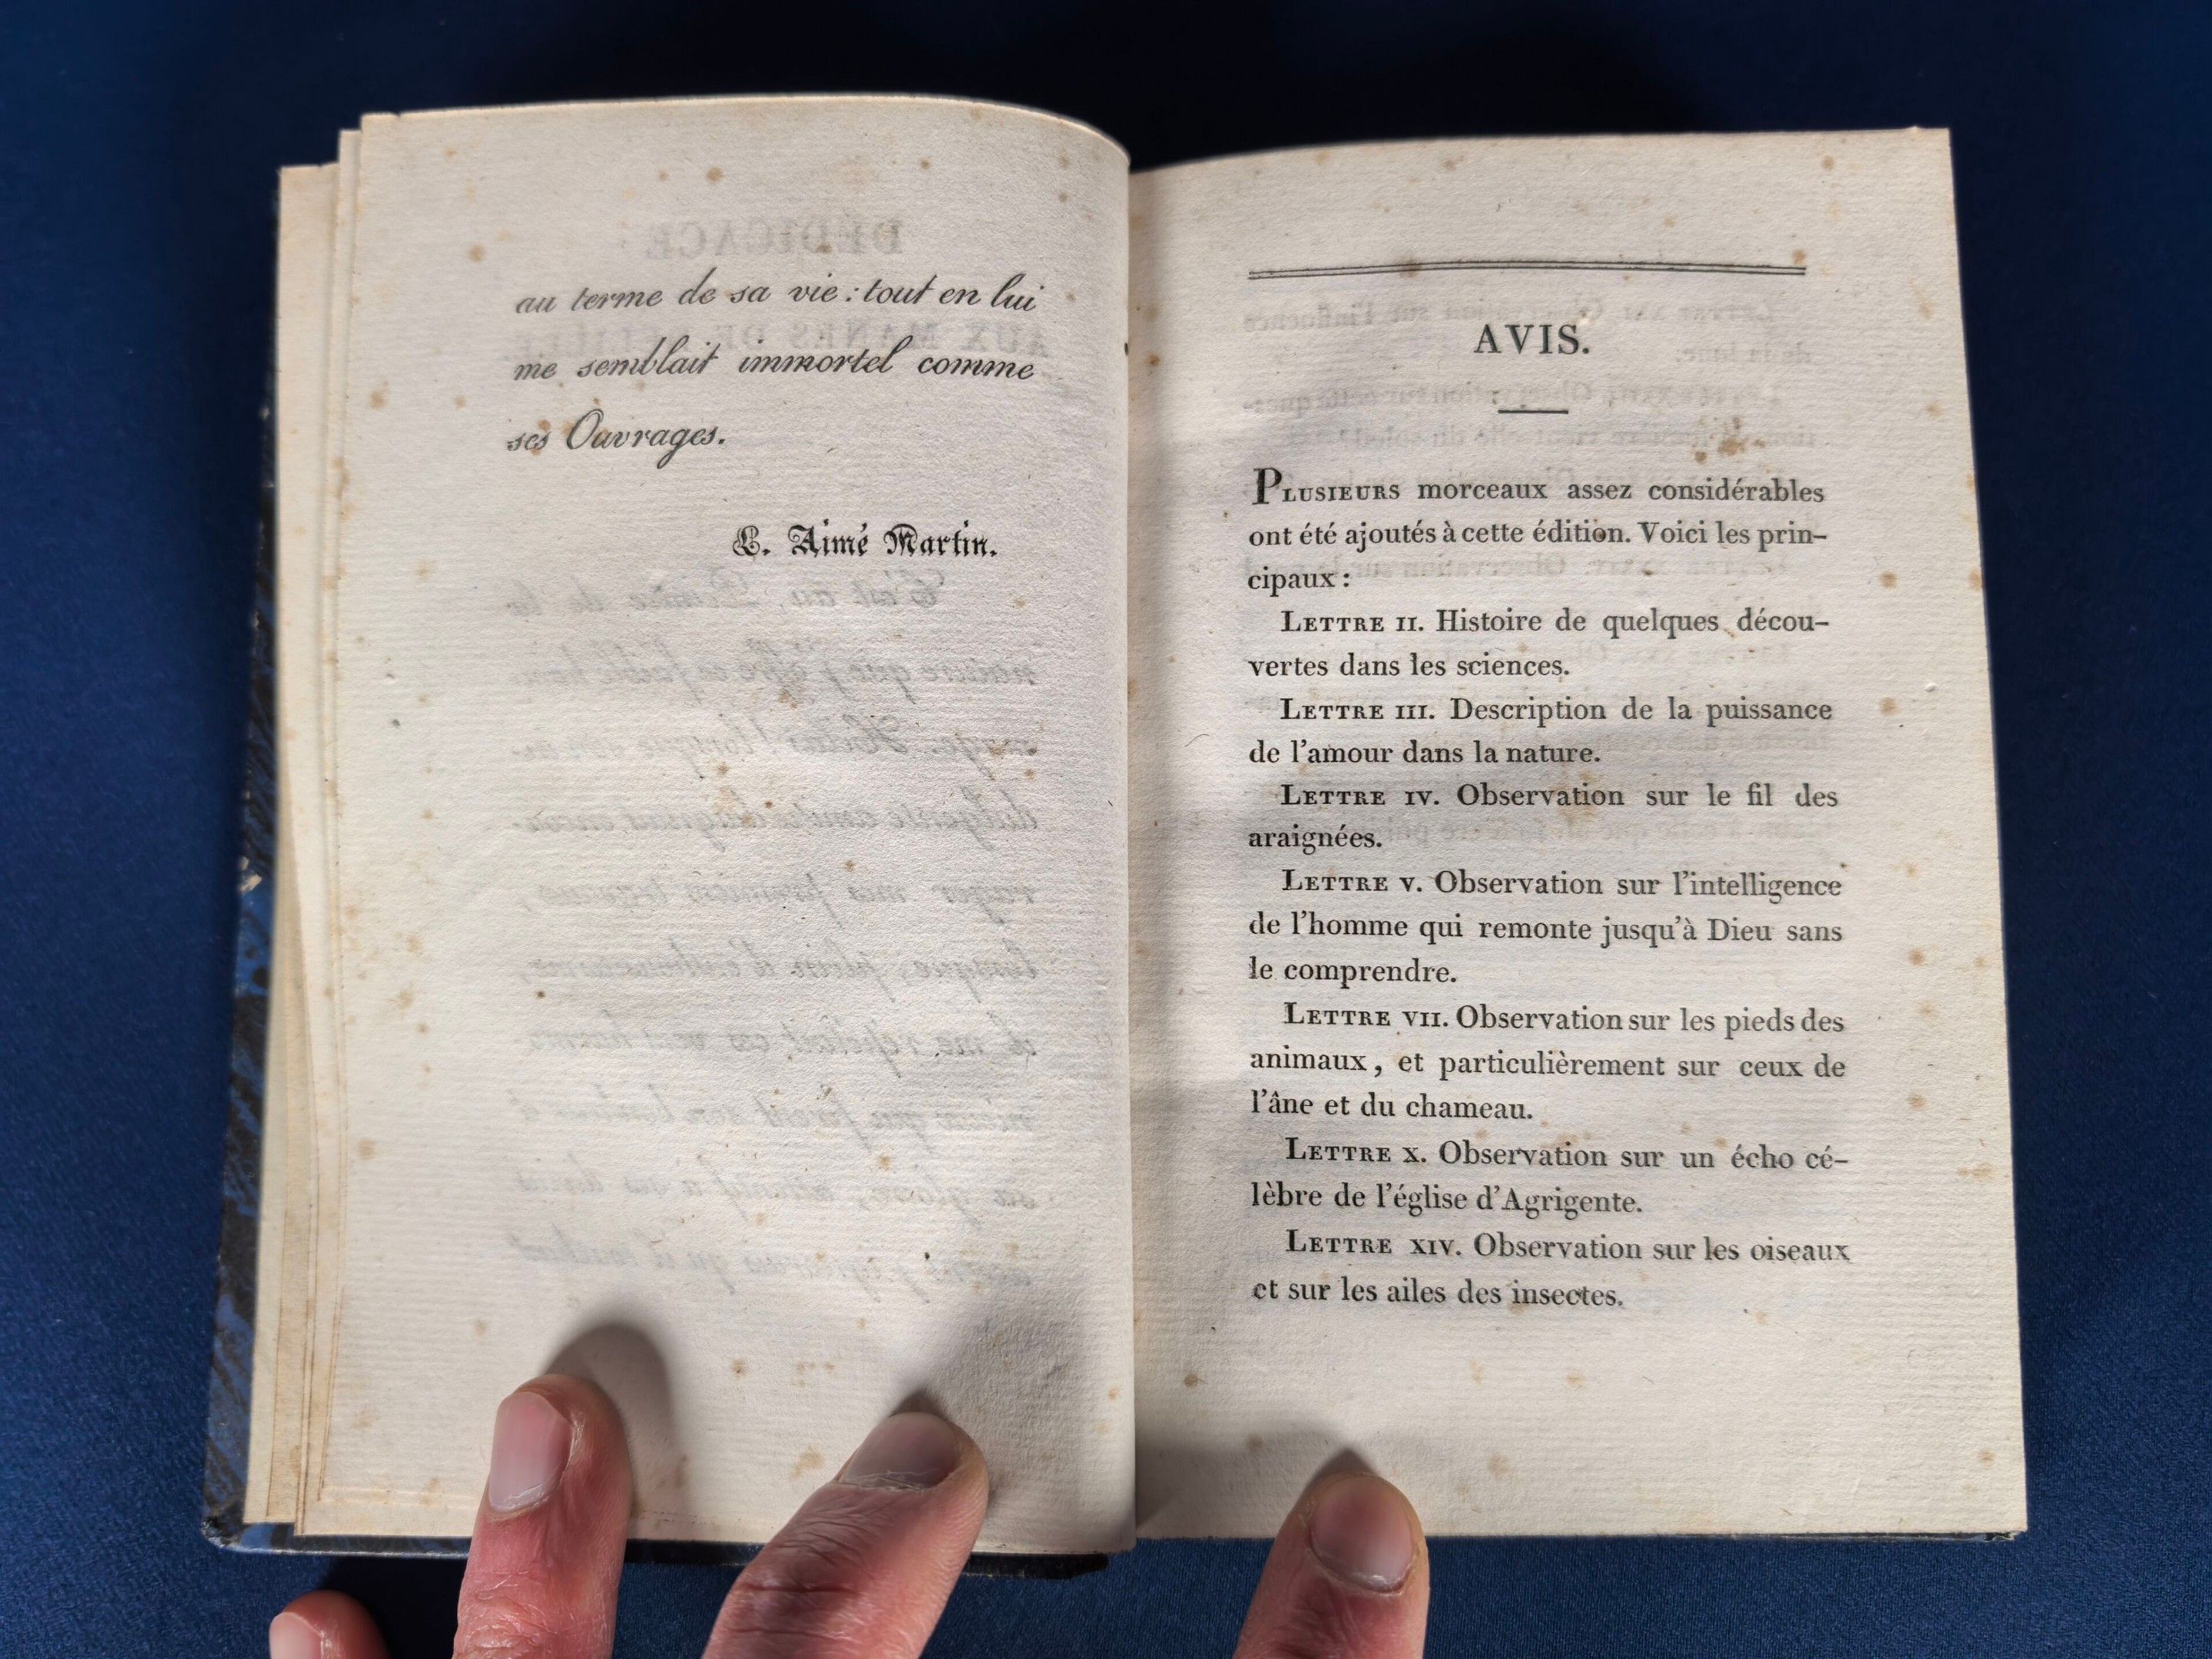 au terme de sa vie : tout en lui
me semblait immortel comme
ses Ouvrages.
L. Aimé Martin.
AVIS.
PLUSIEURS morceaux assez considérables
ont été ajoutés à cette édition. Voici les prin-
cipaux :
LETTRE II. Histoire de quelques décou-
vertes dans les sciences.
LETTRE III. Description de la puissance
de l'amour dans la nature.
LETTRE IV. Observation sur le fil des
araignées.
LETTRE V. Observation sur l'intelligence
de l'homme qui remonte jusqu'à Dieu sans
le comprendre.
LETTRE VII. Observation sur les pieds des
animaux, et particulièrement sur ceux de
l'âne et du chameau.
LETTRE X. Observation sur un écho cé-
lèbre de l'église d'Agrigente.
LETTRE XIV. Observation sur les oiseaux
et sur les ailes des insectes.